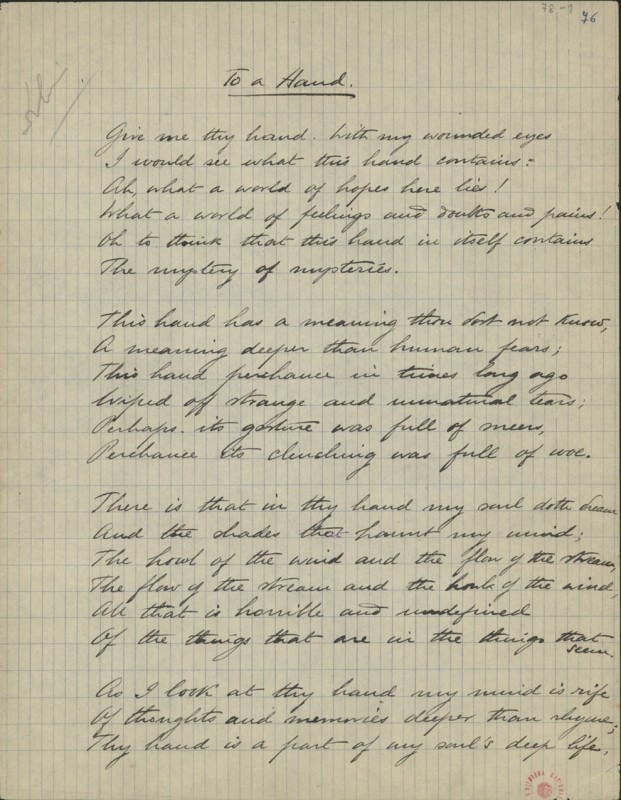 78-1 76
To a Hand.
Give me thy hand. With my wounded eyes
I would see what this hand contains:
Ah, what a world of hopes here lies!
What a world of feelings and doubts and pains!
Oh to think that this hand in itself contains
The mystery of mysteries.
This hand has a meaning thou dost not know,
A meaning deeper than human fears;
This hand perchance in times long ago
Wiped off strange and unnatural tears;
Perhaps its gesture was full of sneers,
Perchance its clenching was full of woe.
There is that in thy hand my soul doth dream
And the shades that haunt my mind;
The howl of the wind and the flow of the stream,
The flow of the stream and the howl of the wind,
All that is horrible and undefined
Of the things that are in the things that
seem.
As I look at thy hand my mind is rife
Of thoughts and memories deeper than rhyme;
Thy hand is a part of my soul's deep life,